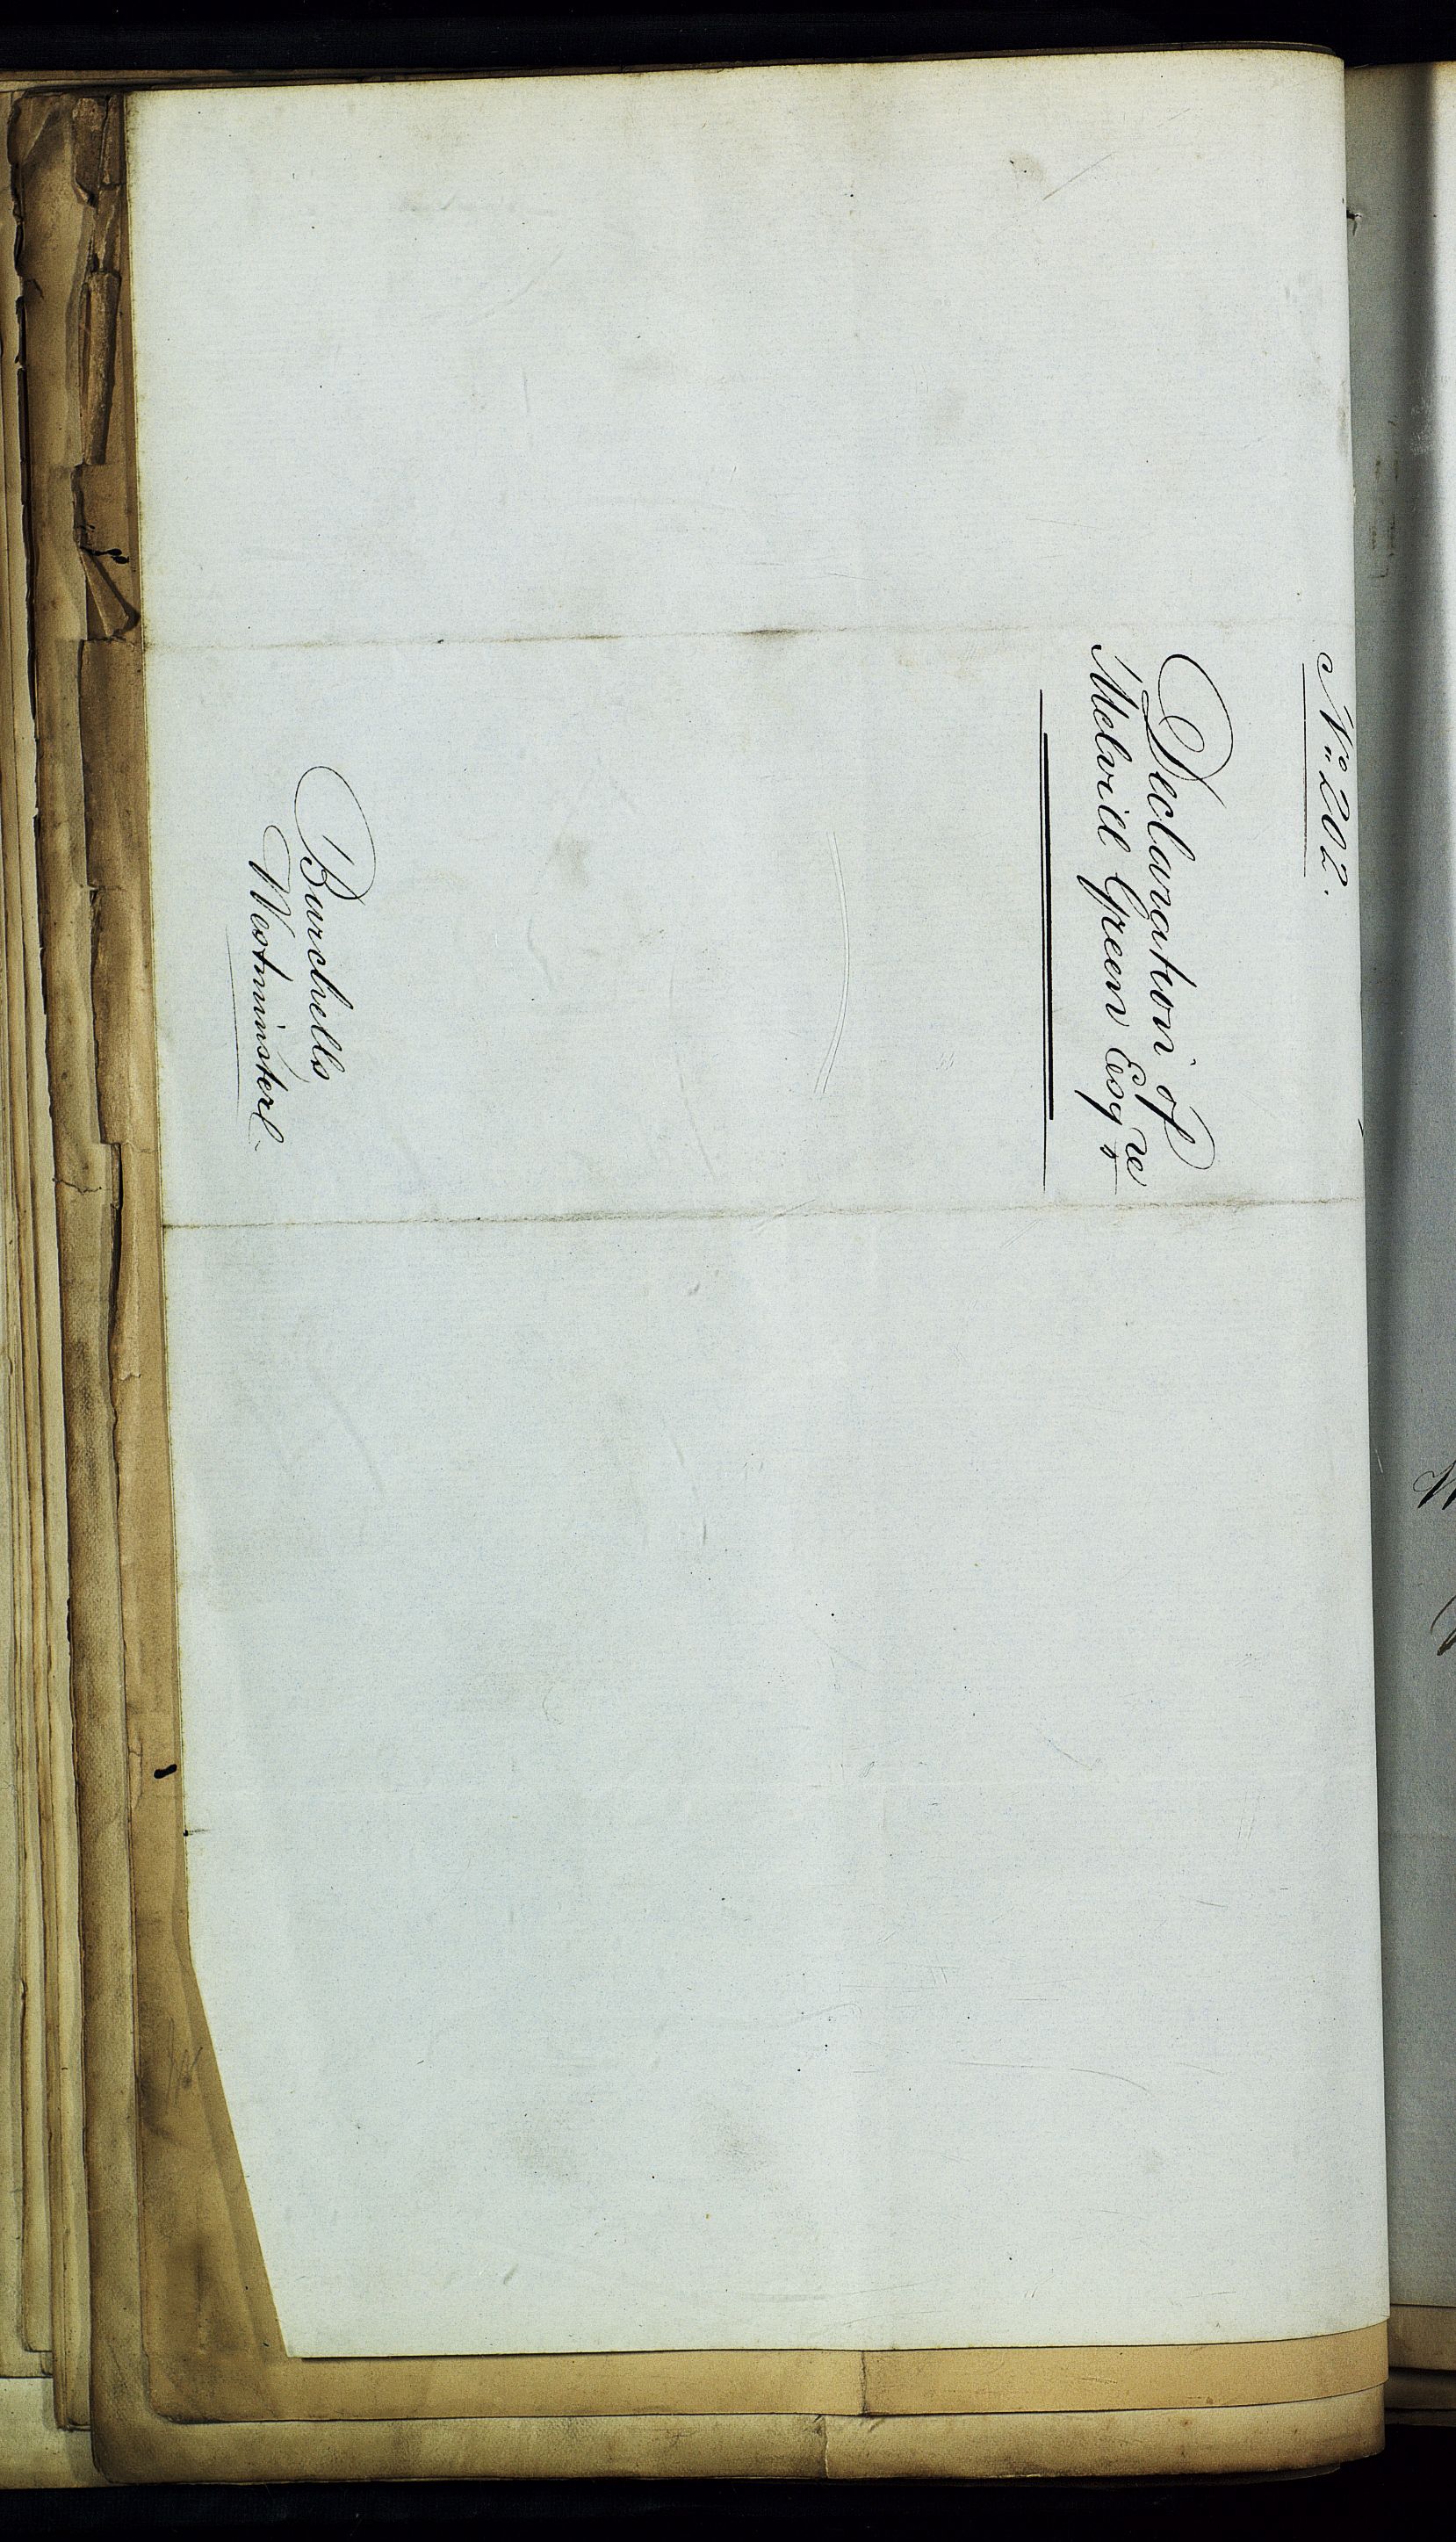 No. 202.
Declaration of
Melvill Green Esqre
Burchells
Westminster